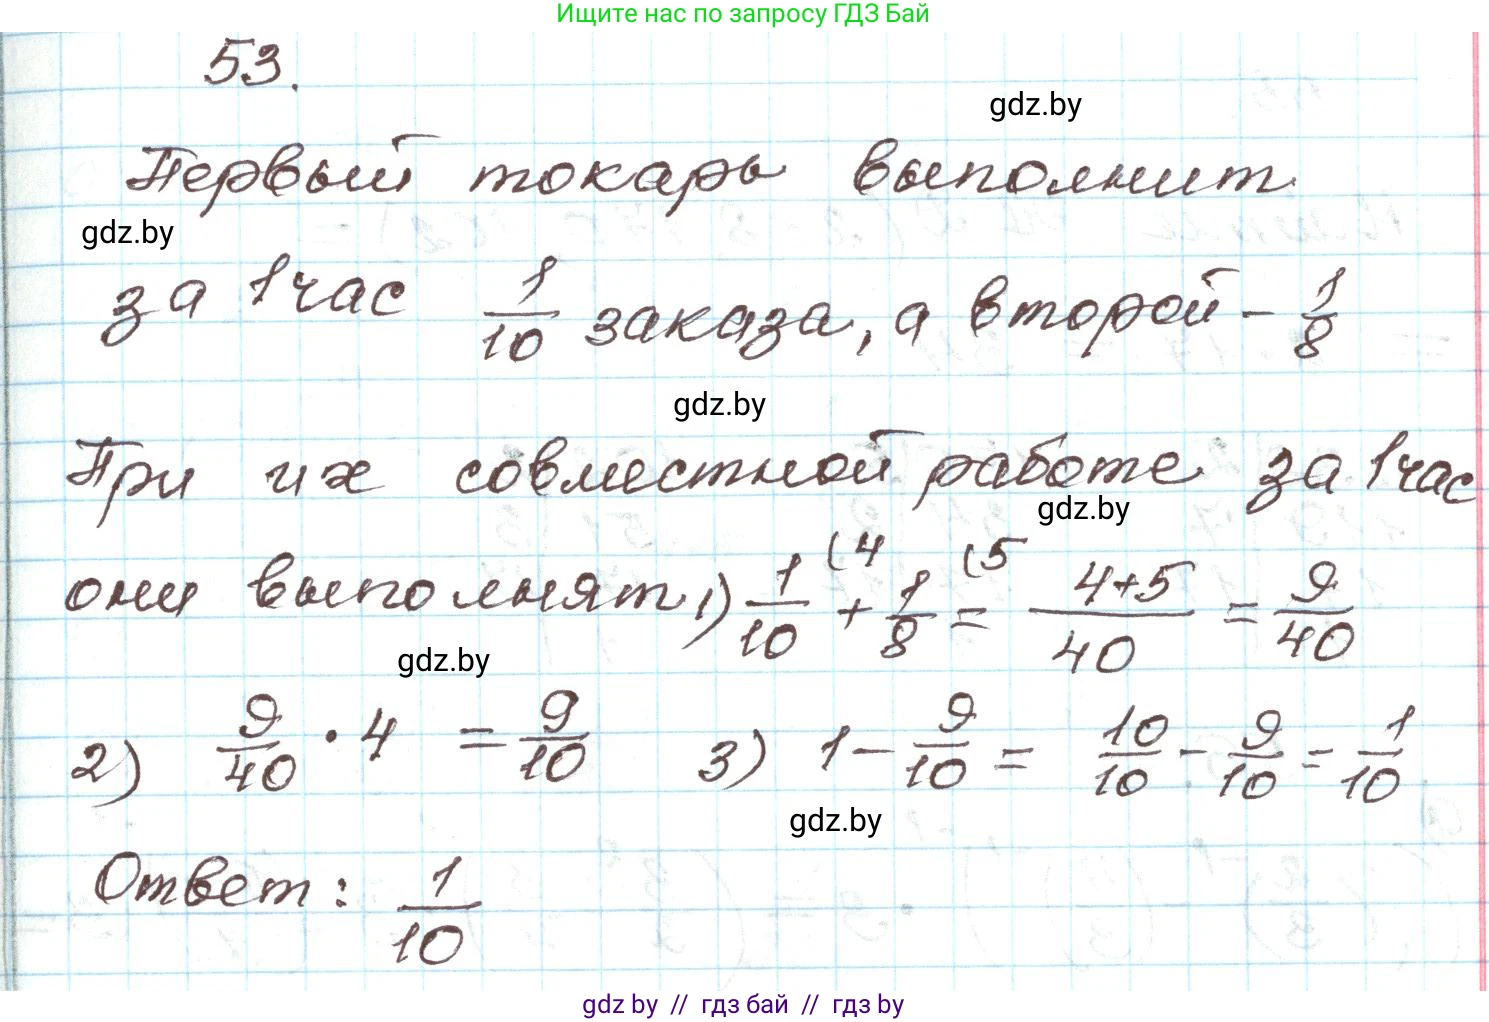 Ищите нас по запросу ГДЗ Бай
53.
gdz.by
Первый токарь выполнит
gdz.by
за 1 час 1/10 заказа, а второй - 1/8
gdz.by
При их совместной работе за 1 час
gdz.by
они выполнят 1) 1/10 (4 + 1/8 (5 = 4+5/40 = 9/40
gdz.by
2) 9/40 · 4 = 9/10 3) 1 - 9/10 = 10/10 - 9/10 = 1/10
gdz.by
Ответ: 1/10
gdz by // гдз бай // гдз by